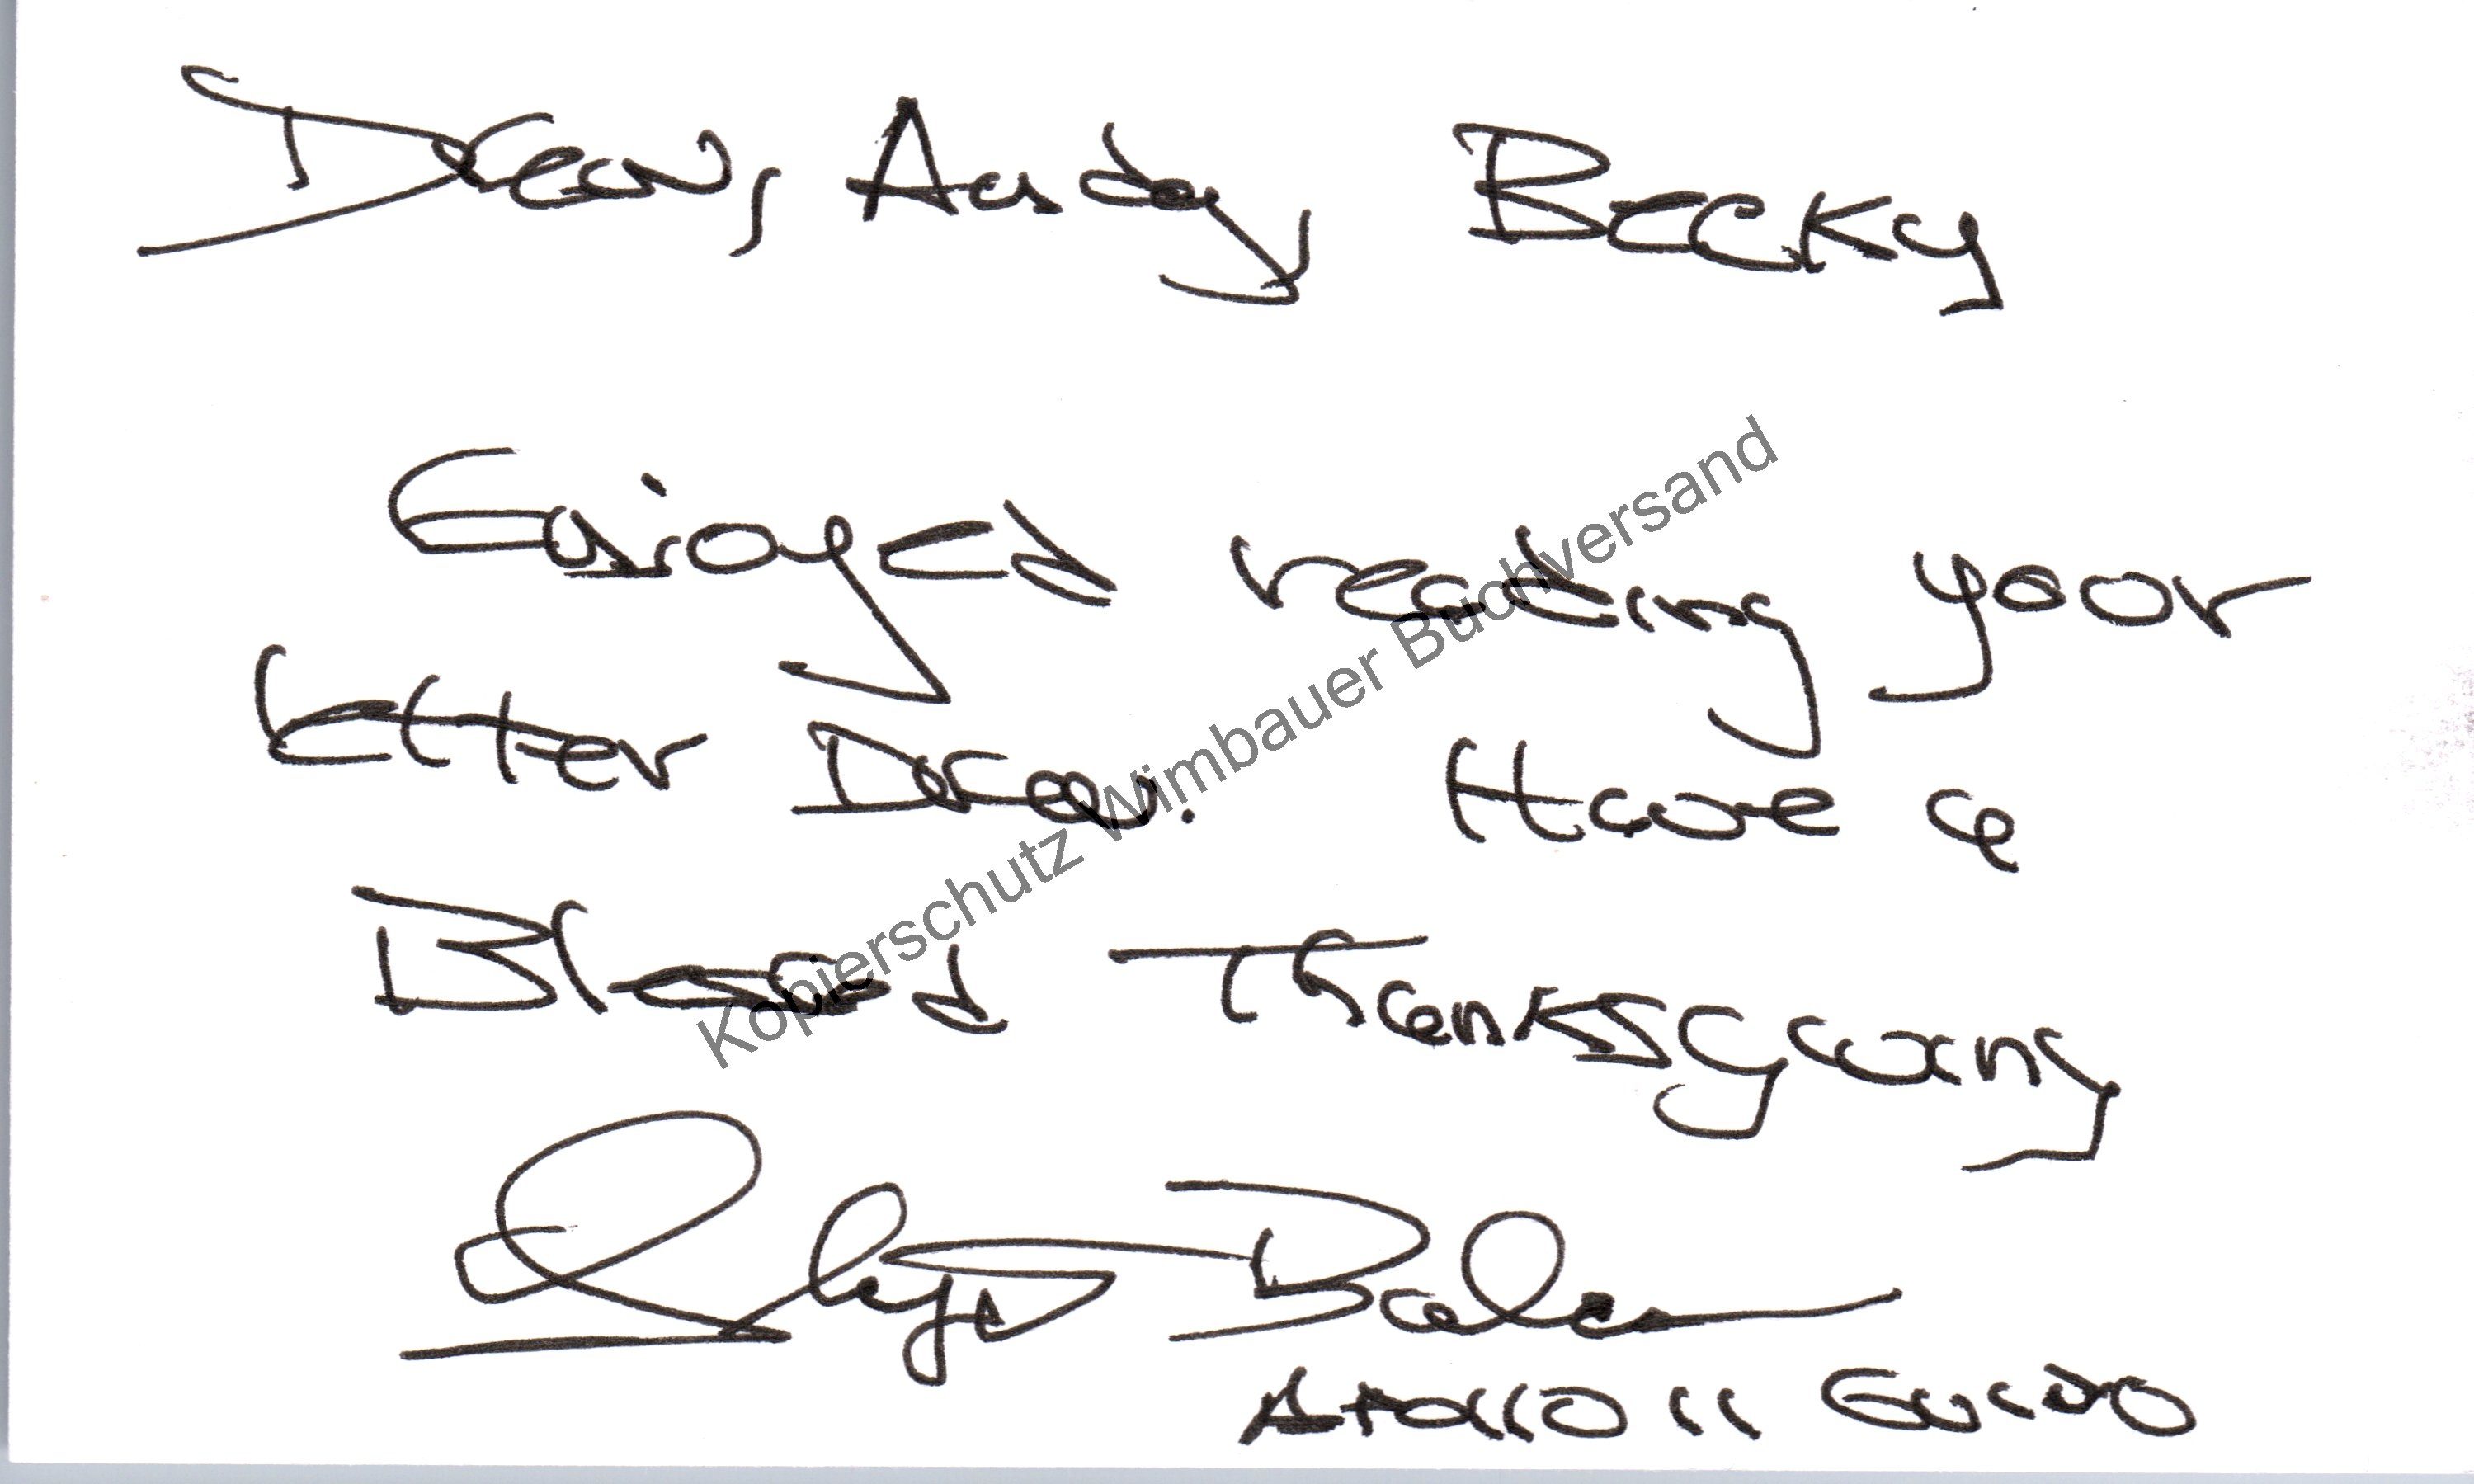 Drew, Andy, Becky
Enjoyed reading your
letter Drew. Have a
Blessed Thanksgiving
Steve Bales
Apollo 11 GUIDO
Kopierschutz Wimbauer Buchversand